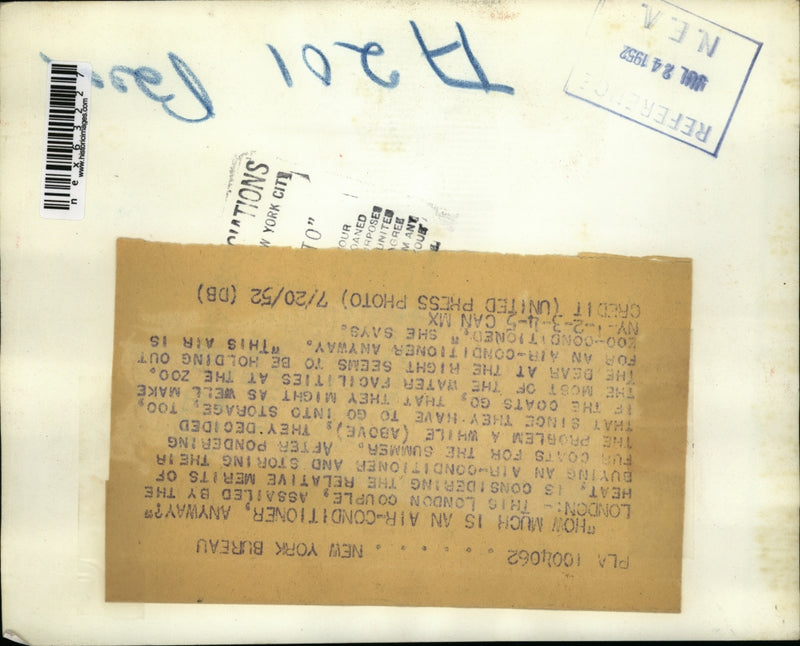 PLA 1004062 . . . . . . NEW YORK BUREAU
"HOW MUCH IS AN AIR-CONDITIONER, ANYWAY?"
LONDON: - THIS LONDON COUPLE, ASSAILED BY THE
HEAT, IS CONSIDERING THE RELATIVE MERITS OF
BUYING AN AIR-CONDITIONER AND STORING THEIR
FUR COATS FOR THE SUMMER. AFTER PONDERING
THE PROBLEM A WHILE (ABOVE), THEY DECIDED
THAT SINCE THEY HAVE TO GO INTO STORAGE, TOO,
IF THE COATS GO, THAT THEY MIGHT AS WELL MAKE
THE MOST OF THE WATER FACILITIES AT THE ZOO.
THE BEAR AT THE RIGHT SEEMS TO BE HOLDING OUT
FOR AN AIR-CONDITIONER ANYWAY. "THIS AIR IS
ZOO-CONDITIONED," SHE SAYS.
NY-1-2-3-4-5 CAN MX
CREDIT (UNITED PRESS PHOTO) 7/20/52 (DB)
REFERENCE
JUL 24 1952
N.E.A.
A 201
CIATIONS
W YORK CITY
TO"
OUR
OANED
RPOSES
UNITED
GREE
M ANY
OUR
nex63227
www.historicimages.com